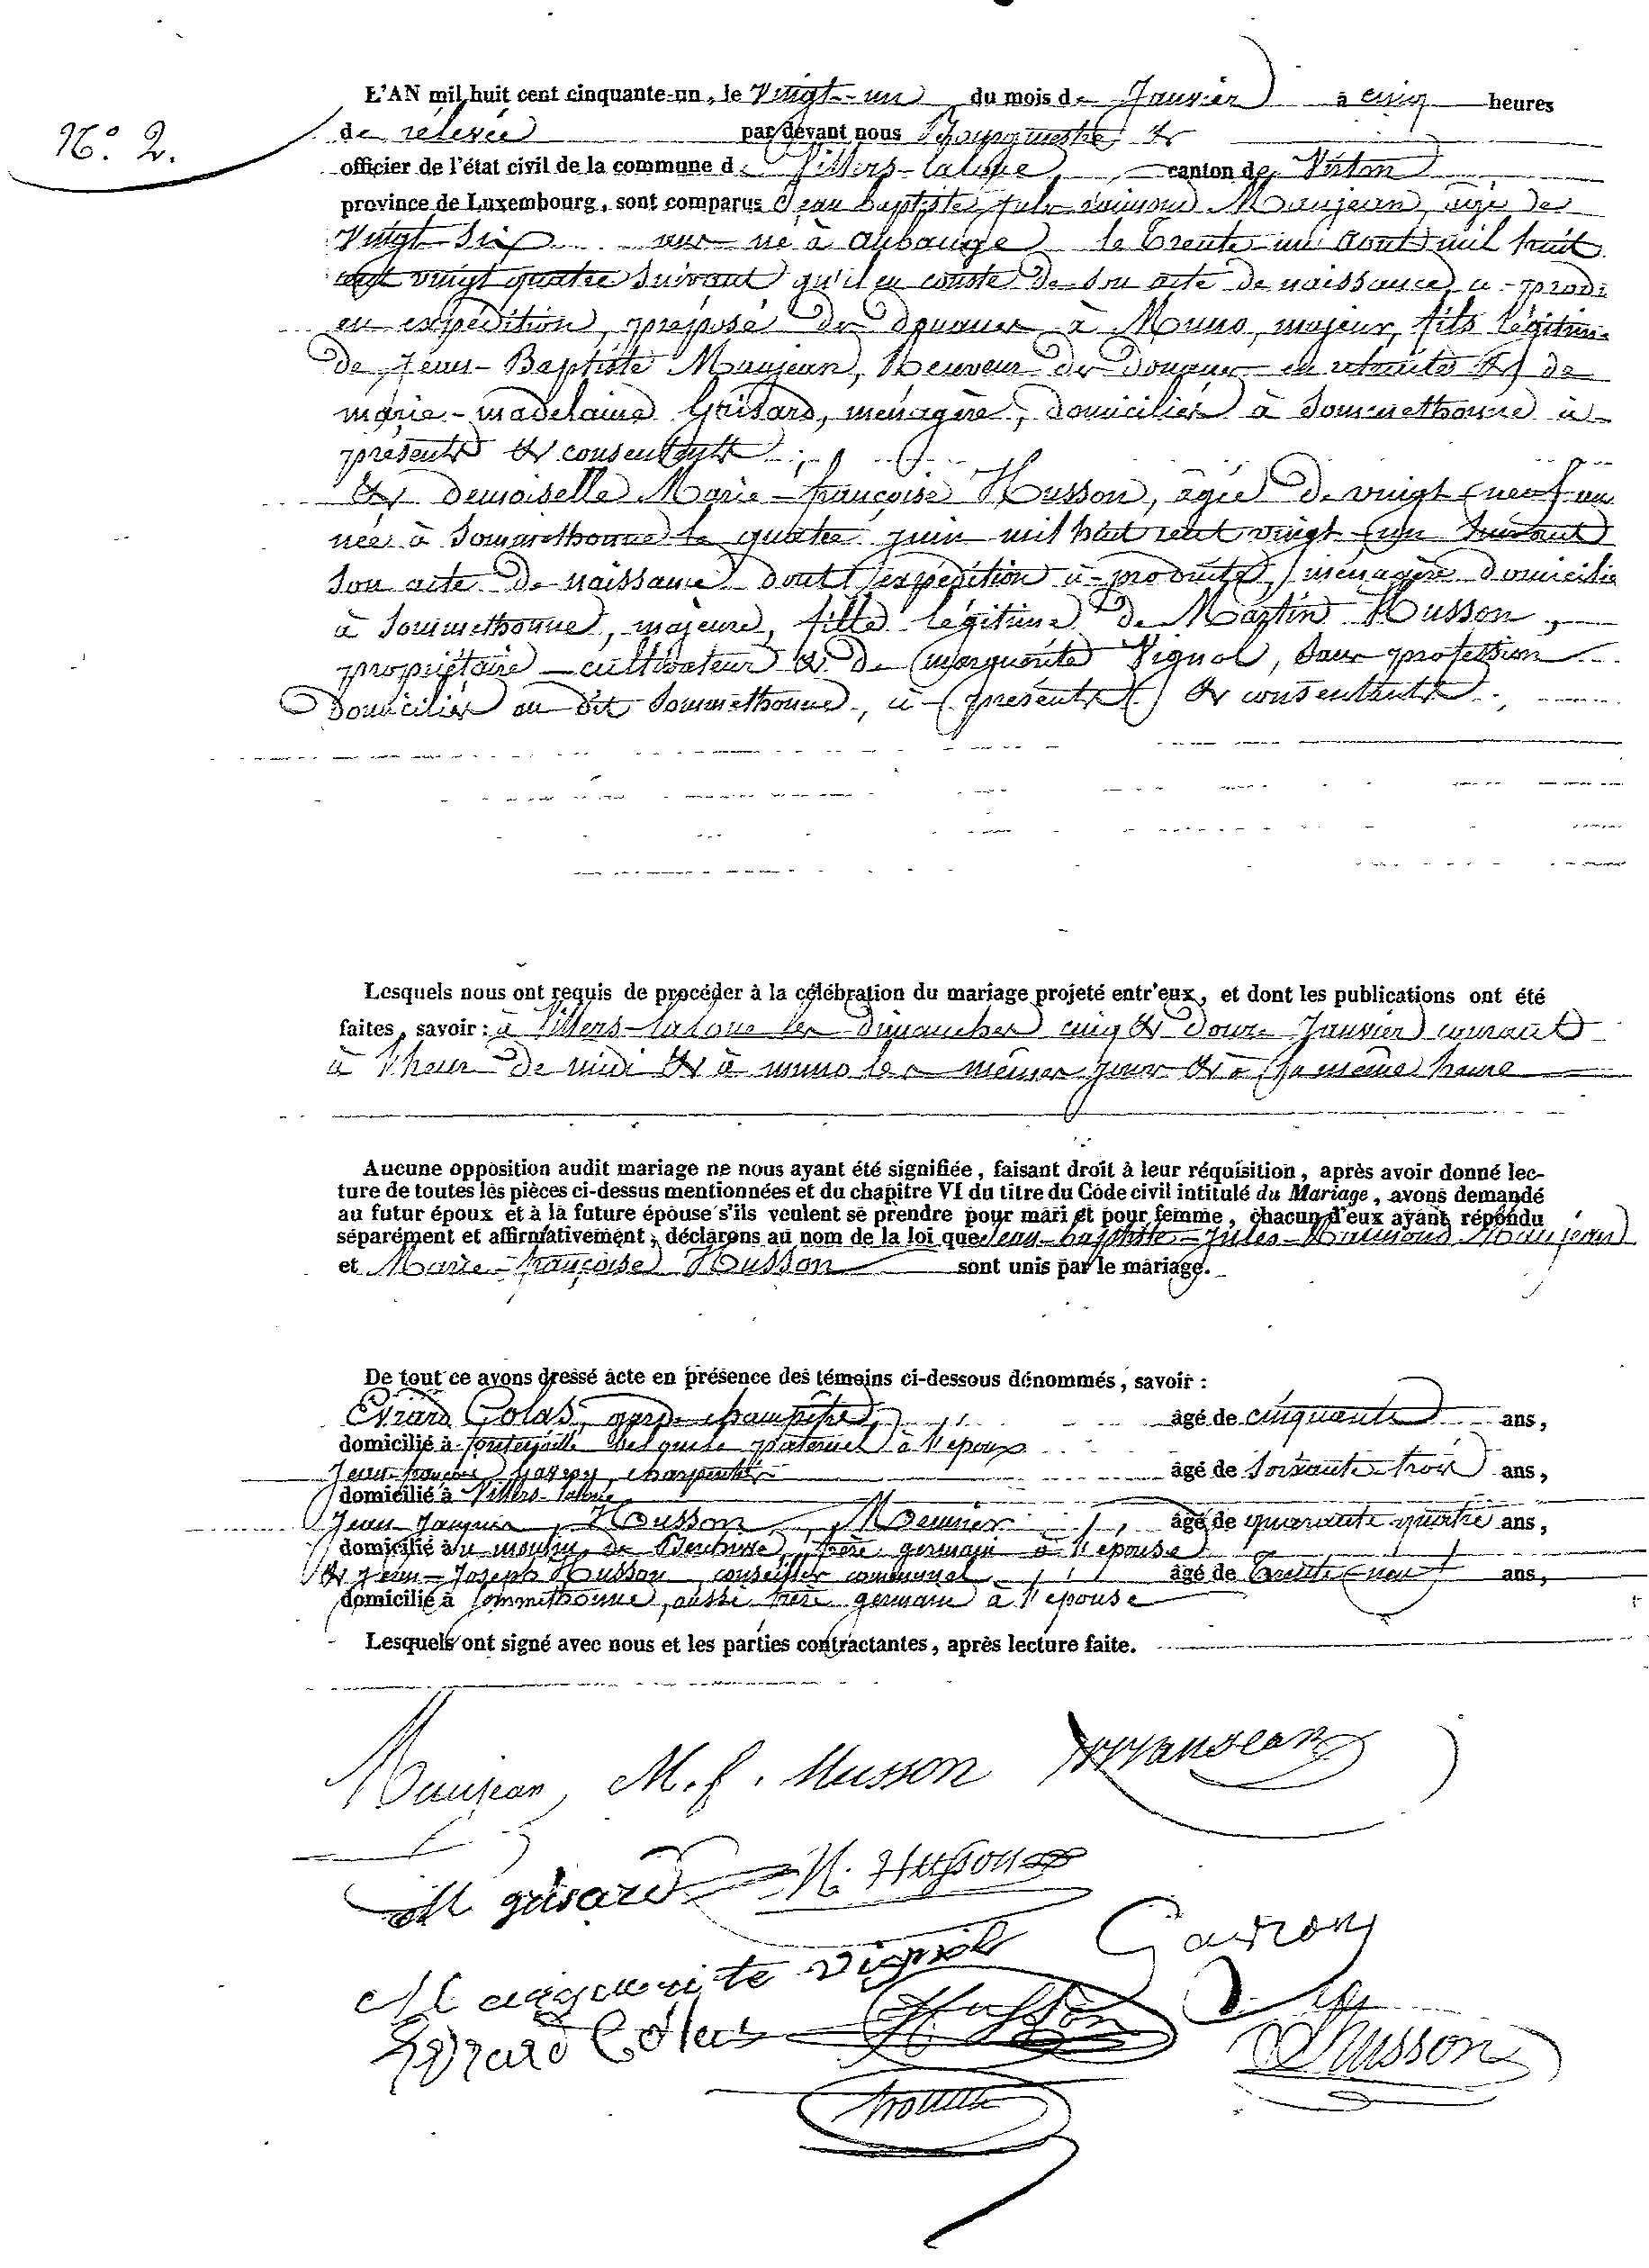 N.° 2.
L'AN mil huit cent cinquante-un, le Vingt-un du mois de Janvier à cinq heures
de rélevée par devant nous Bourgmestre &
officier de l'état civil de la commune de Villers-laloue canton de Virton
province de Luxembourg, sont comparus Jean Baptiste Jules Raimond Maujean, agé de
Vingt-Six ans né à aubange le trente un aout mil huit
cent vingt quatre suivant qu'il en conste de son acte de naissance ci-produit
en expédition, préposé des douanes à Muno, majeur, fils légitime
de Jean-Baptiste Maujean, Receveur des douanes en retraite & de
marie-madelaine Grisard, ménagère, domiciliés à Sommethonne ci-
présents & consentants
& Demoiselle Marie-françoise Husson, agée de vingt neuf ans
née à Sommethonne le quatre juin mil huit cent vingt un suivant
son acte de naissance dont expédition ci-produite, ménagère domicilié
à Sommethonne, majeure, fille légitime de Martin Husson,
propriétaire-cultivateur & de marguerite Vignol, sans profession
Domiciliés au dit Sommethonne, ci-présents & consentants.
Lesquels nous ont requis de procéder à la célébration du mariage projeté entr'eux, et dont les publications ont été
faites, savoir: à Villers-laloue les dimanches cinq & douze Janvier courant
à l'heure de midi & à muno les mêmes jour & à la même heure
Aucune opposition audit mariage ne nous ayant été signifiée, faisant droit à leur réquisition, après avoir donné lec-
ture de toutes les pièces ci-dessus mentionnées et du chapitre VI du titre du Code civil intitulé du Mariage, avons demandé
au futur époux et à la future épouse s'ils veulent se prendre pour mari et pour femme, chacun d'eux ayant répondu
séparément et affirmativement, déclarons au nom de la loi que Jean-baptiste-Jules-Raimond Maujean
et Marie-françoise Husson sont unis par le mariage.
De tout ce avons dressé acte en présence des témoins ci-dessous dénommés, savoir:
Evrard Colas, garde champêtre, âgé de cinquante ans,
domicilié à paternel à l'époux
Jean françois charpentier âgé de Soixante-trois ans,
domicilié à Villers-laloue
Jean Jacques Husson, Meunier âgé de quarante quatre ans,
domicilié au moulin de Berchiwé, frère germain à l'épouse
& Jean-Joseph Husson, conseiller communal âgé de trente neuf ans,
domicilié à Sommethonne, aussi frère germain à l'épouse
Lesquels ont signé avec nous et les parties contractantes, après lecture faite.
Maujean M. f. Husson Maujean
M grisard M. Husson
Marguerite vignol Gavroy
Evrard Colas Husson
Husson